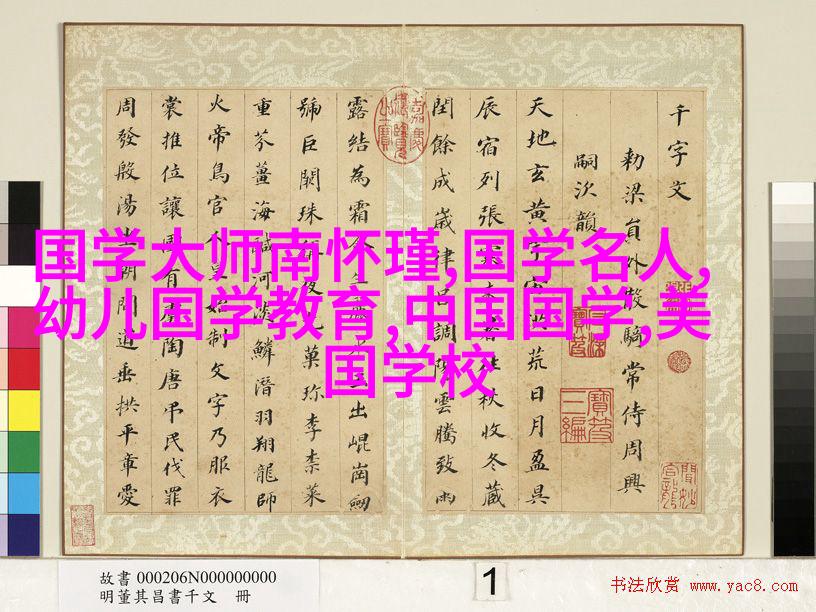 千字文
勑梁員外散騎常侍周興
嗣次韻
天地玄黃宇宙洪荒日月盈昃
辰宿列張寒來暑往秋收冬藏
閏餘成歲律呂調陽雲騰致雨
露結為霜金生麗水玉出崐崗劒
號巨闕珠稱夜光菓珍李柰菜
重芥薑海鹹河淡鱗潛羽翔龍師
火帝鳥官人皇始制文字乃服衣
裳推位讓國有虞陶唐弔民伐罪
周發殷湯坐朝問道垂拱平章愛
嘉慶御覽之寶
寶笈三編
国学大师南怀瑾,国学名人,
幼儿国学教育,中国国学,美
国学校
故書 000206N000000000
明董其昌書千文 冊
1
书法欣赏 www.yac8.com